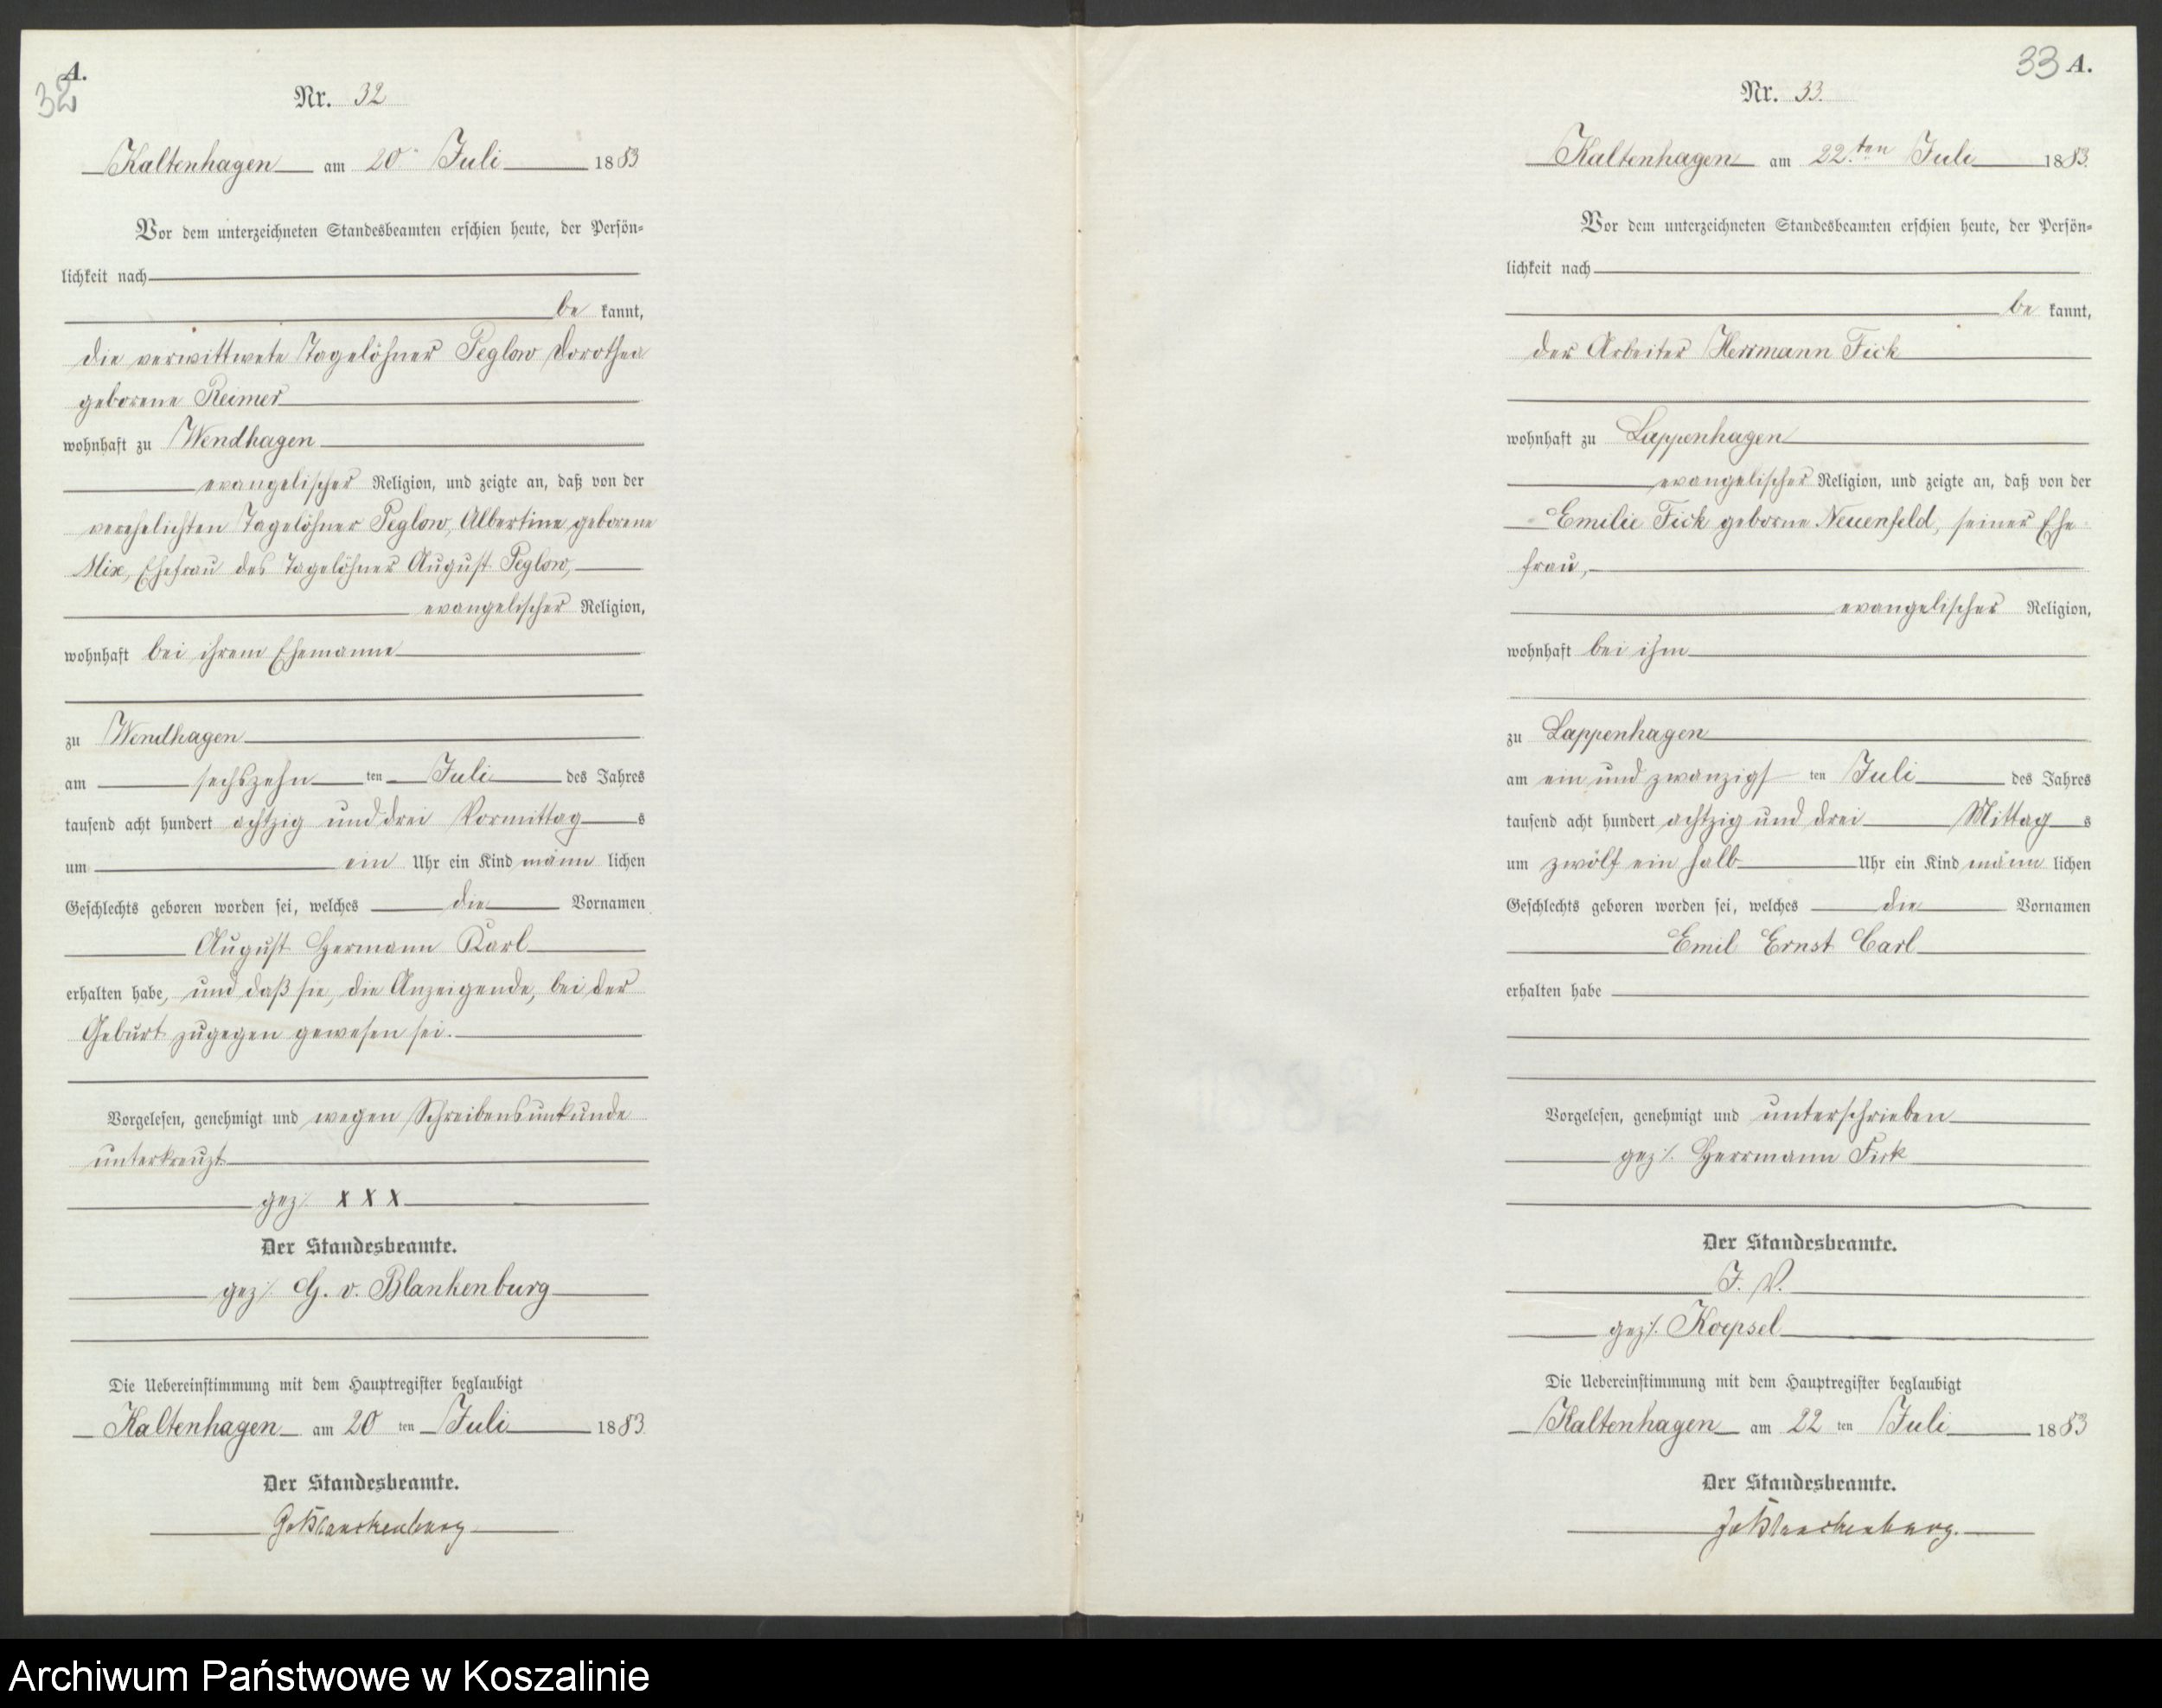 A.
32
Nr. 32
Kaltenhagen am 20 Juli 1883
Vor dem unterzeichneten Standesbeamten erschien heute, der Persön-
lichkeit nach
be kannt,
die verwittwete Tagelöhner Peglow Dorothea
geborene Reimer
wohnhaft zu Wendhagen
evangelischer Religion, und zeigte an, daß von der
verehelichten Tagelöhner Peglow, Albertine geborene
Mix, Ehefrau des Tagelöhner August Peglow,
evangelischer Religion,
wohnhaft bei ihrem Ehemanne
zu Wendhagen
am sechszehn ten Juli des Jahres
tausend acht hundert achtzig und drei Vormittag s
um ein Uhr ein Kind männ lichen
Geschlechts geboren worden sei, welches die Vornamen
August Hermann Karl
erhalten habe, und daß sie, die Anzeigende, bei der
Geburt zugegen gewesen sei.
Vorgelesen, genehmigt und wegen Schreibensunkunde
unterkreuzt
gez. XXX
Der Standesbeamte.
gez. G. v. Blankenburg
Die Uebereinstimmung mit dem Hauptregister beglaubigt
Kaltenhagen am 20 ten Juli 1883
Der Standesbeamte.
GvBlanckenburg
33 A.
Nr. 33.
Kaltenhagen am 22.ten Juli 1883.
Vor dem unterzeichneten Standesbeamten erschien heute, der Persön-
lichkeit nach
be kannt,
der Arbeiter Herrmann Fick
wohnhaft zu Lappenhagen
evangelischer Religion, und zeigte an, daß von der
Emilie Fick geborne Neuenfeld, seiner Ehe
frau,
evangelischer Religion,
wohnhaft bei ihm
zu Lappenhagen
am ein und zwanzigs ten Juli des Jahres
tausend acht hundert achtzig und drei Mittag s
um zwölf ein halb Uhr ein Kind männ lichen
Geschlechts geboren worden sei, welches die Vornamen
Emil Ernst Carl
erhalten habe
Vorgelesen, genehmigt und unterschrieben
gez. Herrmann Fick
Der Standesbeamte.
J. V.
gez. Koepsel
Die Uebereinstimmung mit dem Hauptregister beglaubigt
Kaltenhagen am 22 ten Juli 1883
Der Standesbeamte.
GvBlanckenburg.
Archiwum Państwowe w Koszalinie